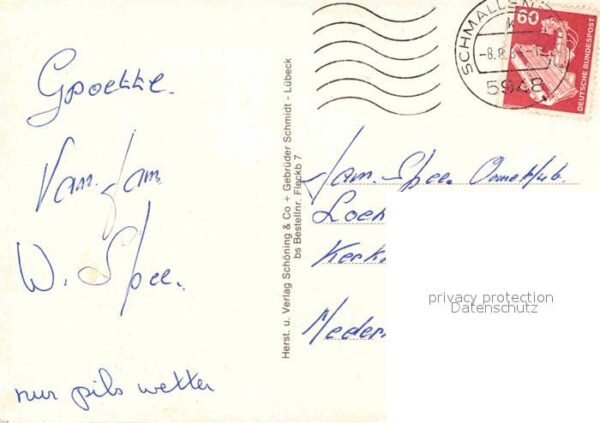 Groette.
Van. fam
W. Spee.
nur pils wetter
Herst. u. Verlag Schöning & Co + Gebrüder Schmidt - Lübeck
bs Bestellnr. Fleckb 7
SCHMALLENB
-8.8.
5948
60
DEUTSCHE BUNDESPOST
fam. Spee.
Loen
Kerk
Neder
privacy protection
Datenschutz